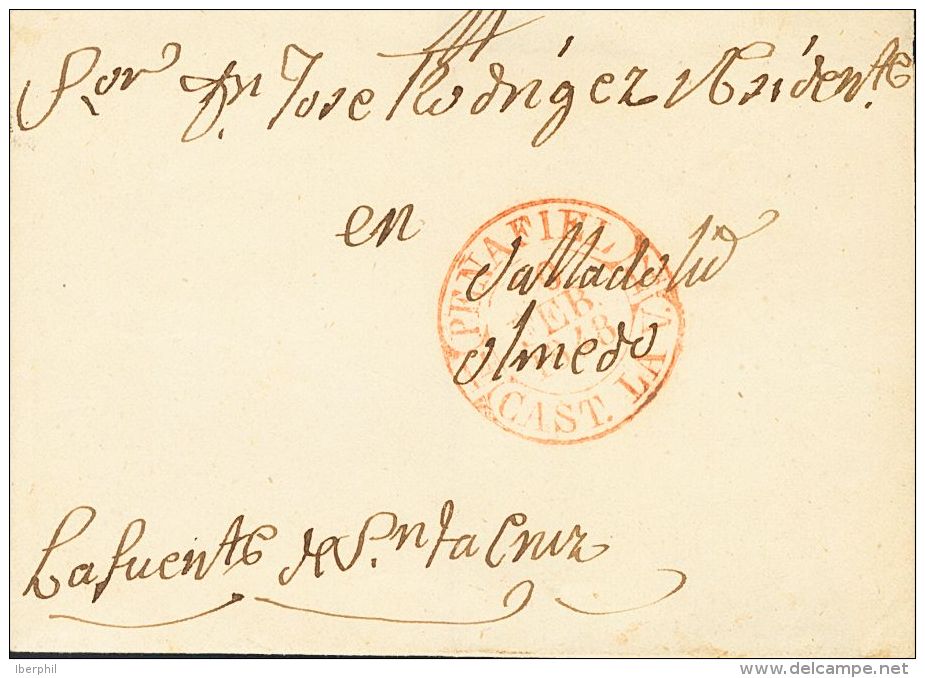 Sor. Dn. Jose Rodrigez Residente
en
Valladolid
olmedo
PEÑAFIEL
FEB
1848
CAST. LA VA
La fuente de Santa Cruz
Iberphil
www.delcampe.net